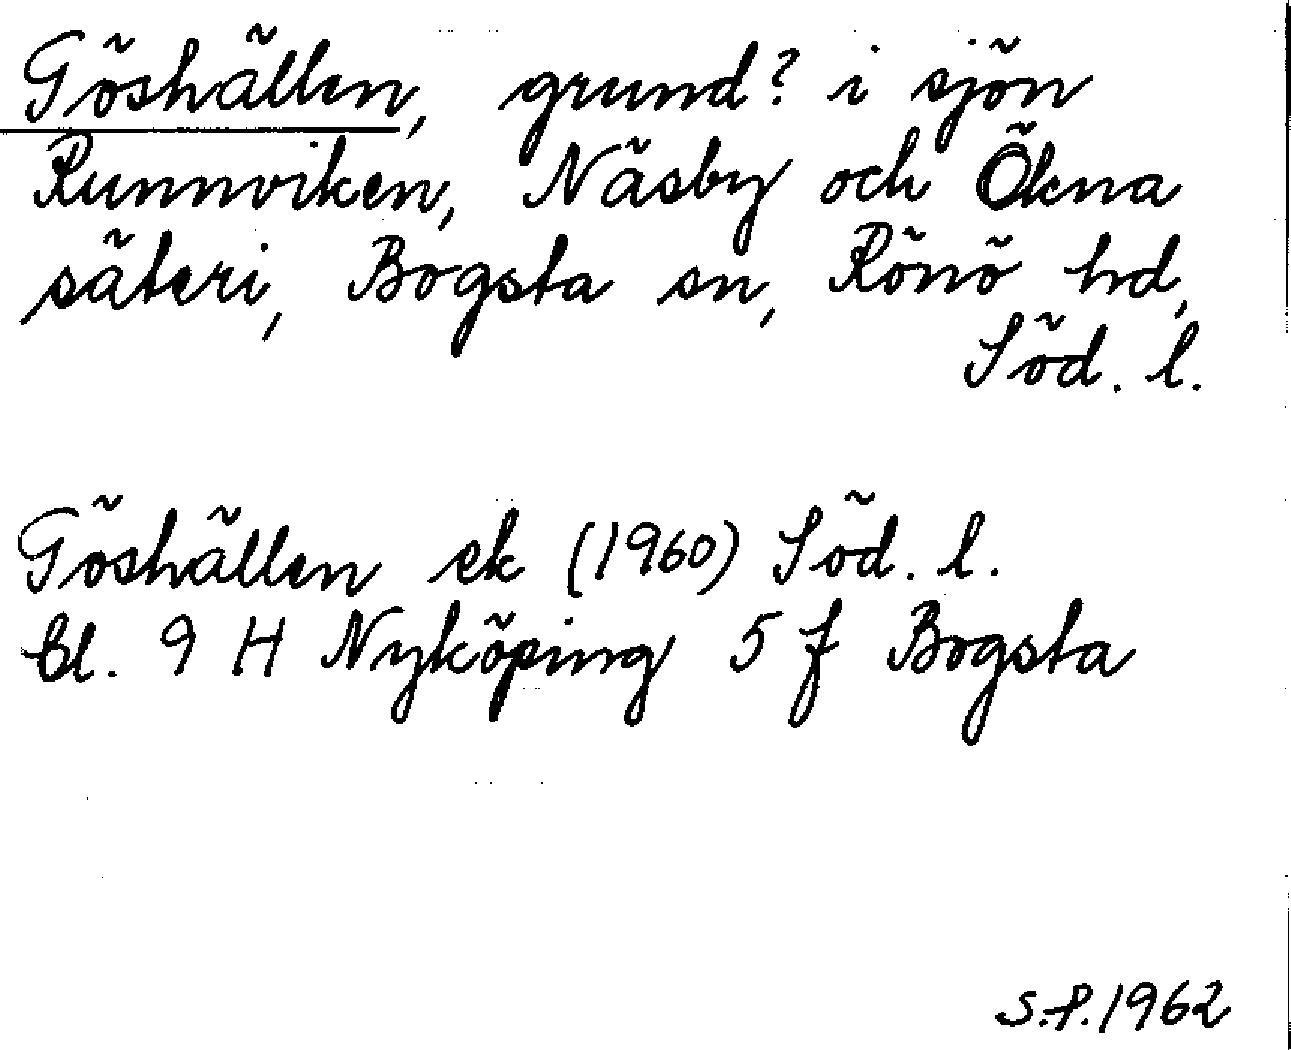 Göshällen, grund? i sjön
Runnviken, Näsby och Ökna
säteri, Bogsta sn, Rönö hd,
Söd. l.
Göshällen ek (1960) Söd. l.
bl. 9 H Nyköping 5 f Bogsta
S.P. 1962